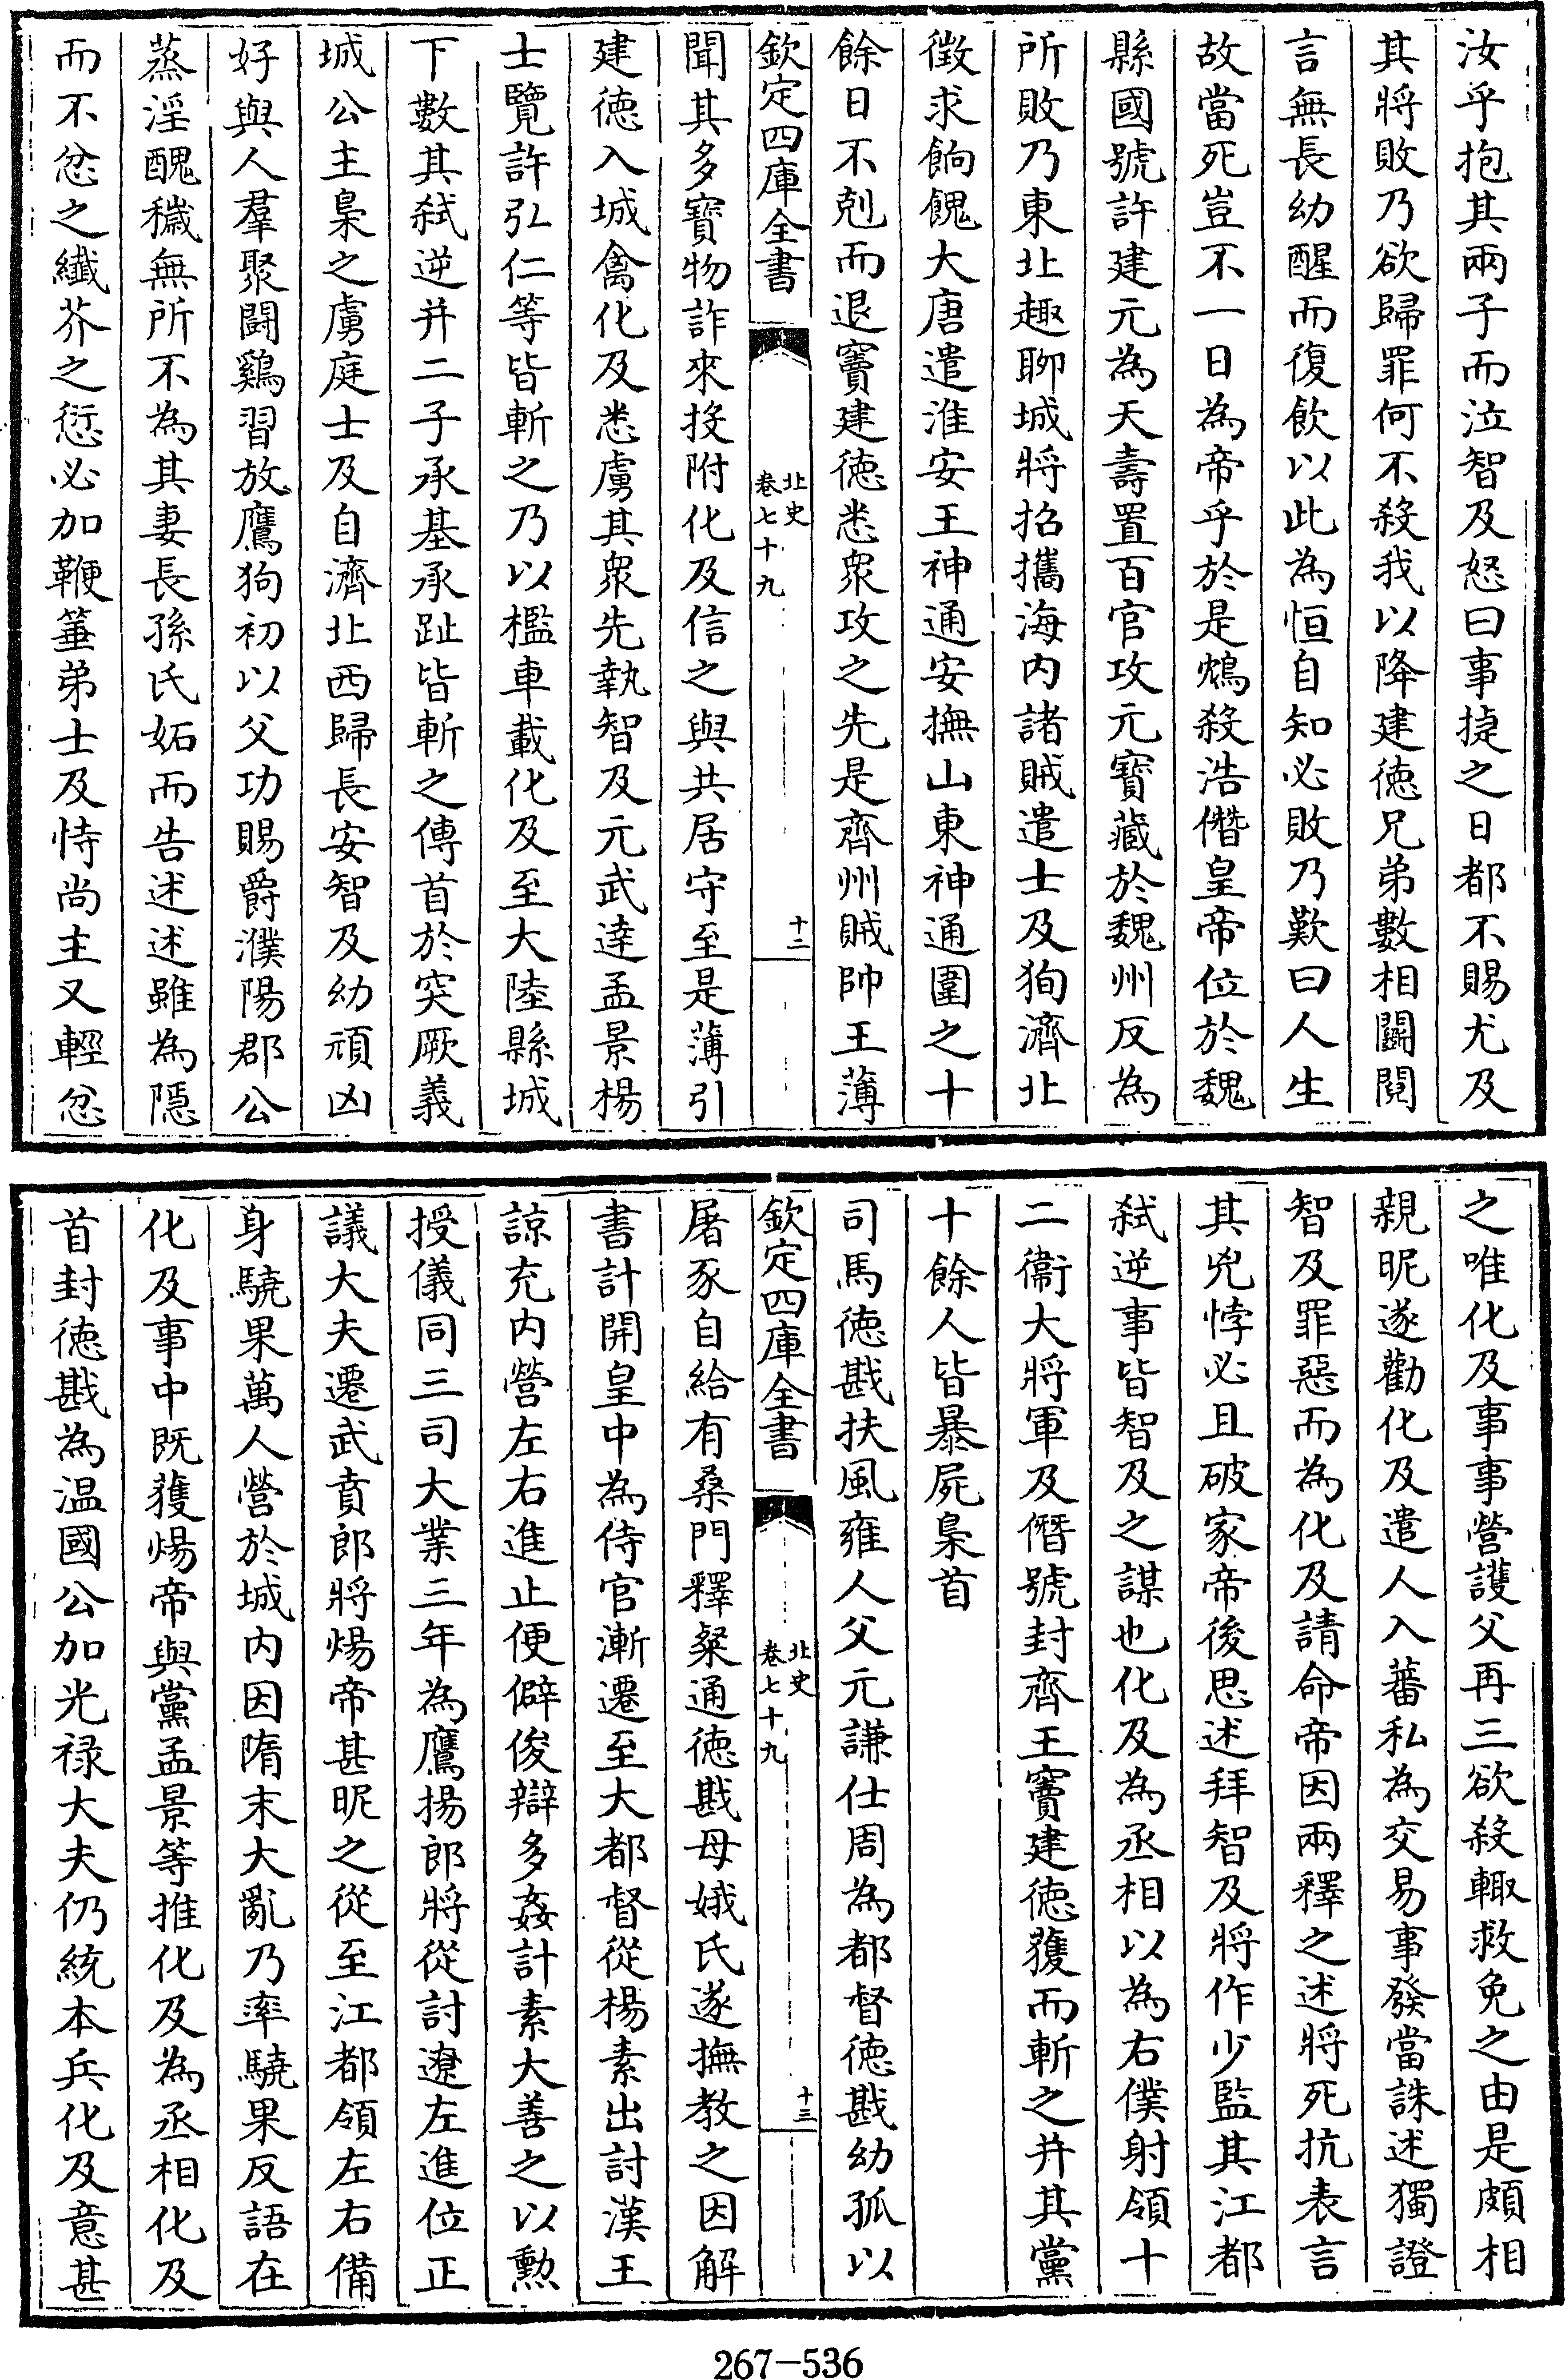 汝乎抱其兩子而泣智及怒曰事捷之日都不賜尤及
其將敗乃欲歸罪何不殺我以降建德兄弟數相鬭鬩
言無長幼醒而復飲以此為恒自知必敗乃歎曰人生
故當死豈不一日為帝乎於是鴆殺浩僭皇帝位於魏
縣國號許建元為天壽置百官攻元寶藏於魏州反為
所敗乃東北趣聊城將招攜海内諸賊遣士及狥濟北
徵求餉餽大唐遣淮安王神通安撫山東神通圍之十
餘日不剋而退竇建德悉衆攻之先是齊州賊帥王薄
欽定四庫全書
北史
卷七十九
十二
聞其多寶物詐來投附化及信之與共居守至是薄引
建德入城禽化及悉虜其衆先執智及元武達孟景楊
士覽許弘仁等皆斬之乃以檻車載化及至大陸縣城
下數其弑逆并二子承基承趾皆斬之傳首於突厥義
城公主梟之虜庭士及自濟北西歸長安智及幼頑凶
好與人羣聚鬪鷄習放鷹狗初以父功賜爵濮陽郡公
蒸淫醜穢無所不為其妻長孫氏妬而告述述雖為隱
而不忿之纖芥之愆必加鞭箠弟士及恃尚主又輕忽
之唯化及事事營護父再三欲殺輙救免之由是頗相
親昵遂勸化及遣人入蕃私為交易事發當誅述獨證
智及罪惡而為化及請命帝因兩釋之述將死抗表言
其兇悖必且破家帝後思述拜智及將作少監其江都
弑逆事皆智及之謀也化及為丞相以為右僕射領十
二衞大將軍及僭號封齊王竇建德獲而斬之并其黨
十餘人皆暴屍梟首
司馬德戡扶風雍人父元謙仕周為都督德戡幼孤以
欽定四庫全書
北史
卷七十九
十三
屠豕自給有桑門釋粲通德戡母娥氏遂撫教之因解
書計開皇中為侍官漸遷至大都督從楊素出討漢王
諒充内營左右進止便僻俊辯多姦計素大善之以勲
授儀同三司大業三年為鷹揚郎將從討遼左進位正
議大夫遷武賁郎將煬帝甚昵之從至江都領左右備
身驍果萬人營於城内因隋末大亂乃率驍果反語在
化及事中既獲煬帝與黨孟景等推化及為丞相化及
首封德戡為温國公加光禄大夫仍統本兵化及意甚
267-536